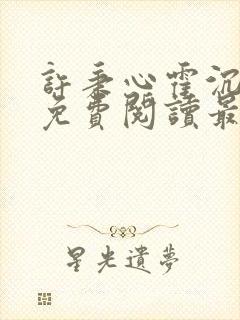 許秉心霍沉
免費閱讀最
星光遺夢